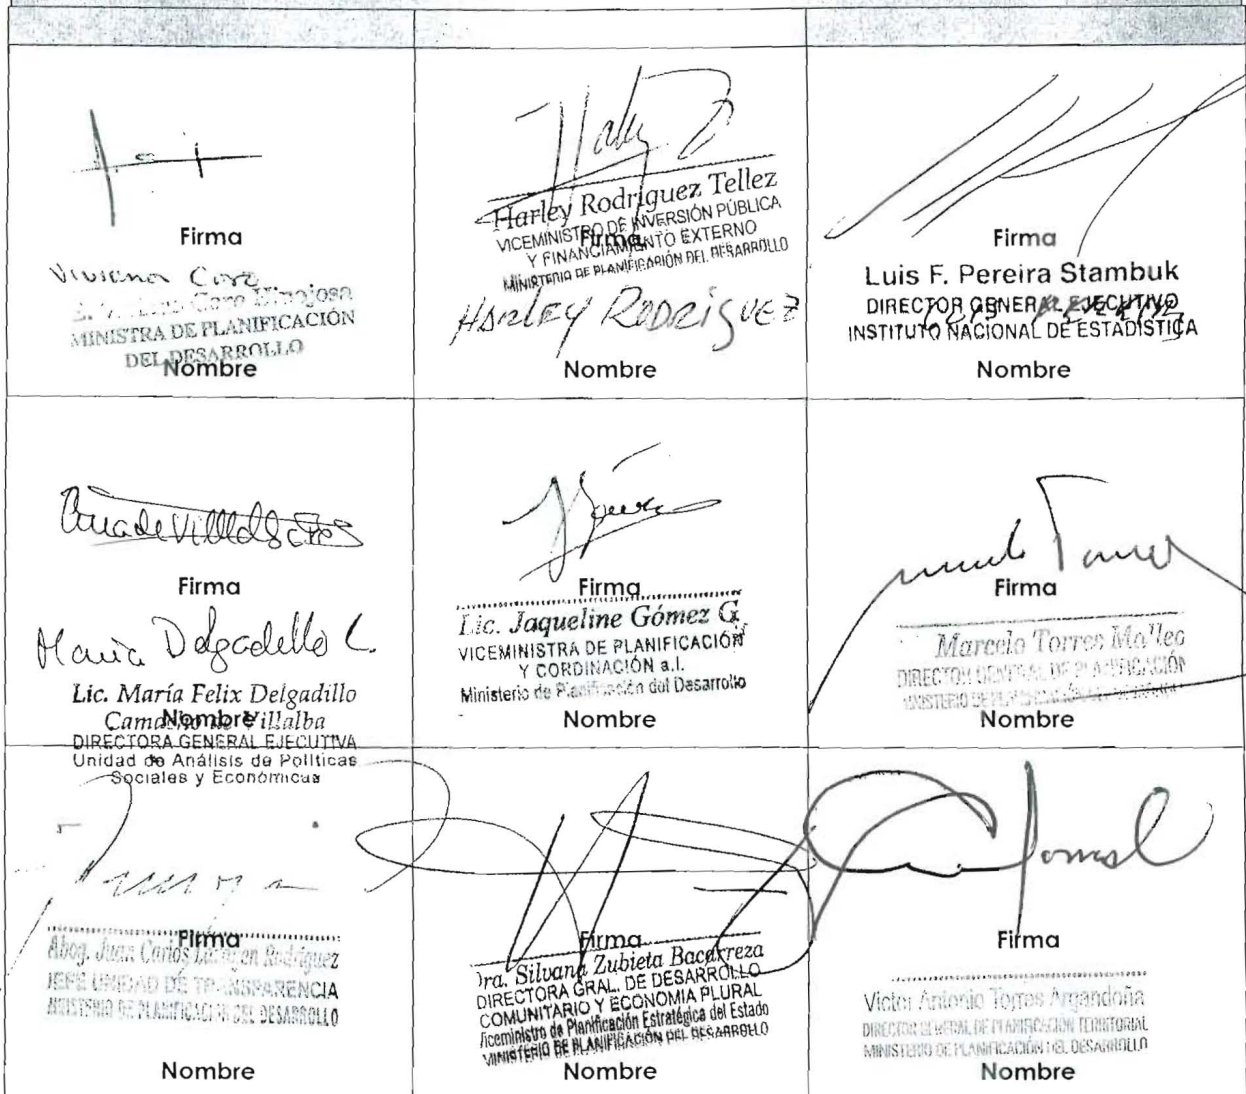 Firma
Viviana Caro
Caro Hinojosa
MINISTRA DE PLANIFICACIÓN
DEL DESARROLLO
Nombre
Harley Rodriguez Tellez
VICEMINISTRO DE INVERSIÓN PÚBLICA
Firma
Y FINANCIAMIENTO EXTERNO
MINISTERIO DE PLANIFICACIÓN DEL DESARROLLO
HARLEY RODRIGUEZ
Nombre
Firma
Luis F. Pereira Stambuk
DIRECTOR GENERAL EJECUTIVO
INSTITUTO NACIONAL DE ESTADÍSTICA
Nombre
Firma
Maria Delgadillo C.
Lic. María Felix Delgadillo
Camacho de Villalba
Nombre
DIRECTORA GENERAL EJECUTIVA
Unidad de Análisis de Políticas
Sociales y Económicas
Firma
Lic. Jaqueline Gómez G.
VICEMINISTRA DE PLANIFICACIÓN
Y CORDINACIÓN a.i.
Ministerio de Planificación del Desarrollo
Nombre
Marcelo Torres
Firma
Marcelo Torres
DIRECTOR GENERAL DE PLANIFICACIÓN
Nombre
Firma
Abog. Juan Carlos Rodríguez
JEFE UNIDAD DE TRANSPARENCIA
MINISTERIO DE PLANIFICACIÓN DEL DESARROLLO
Nombre
Firma
Dra. Silvana Zubieta Bacarreza
DIRECTORA GRAL. DE DESARROLLO
COMUNITARIO Y ECONOMIA PLURAL
Viceministro de Planificación Estratégica del Estado
MINISTERIO DE PLANIFICACIÓN DEL DESARROLLO
Nombre
Firma
Victor Antonio Torres Argandoña
DIRECTOR GENERAL DE PLANIFICACIÓN TERRITORIAL
MINISTERIO DE PLANIFICACIÓN DEL DESARROLLO
Nombre